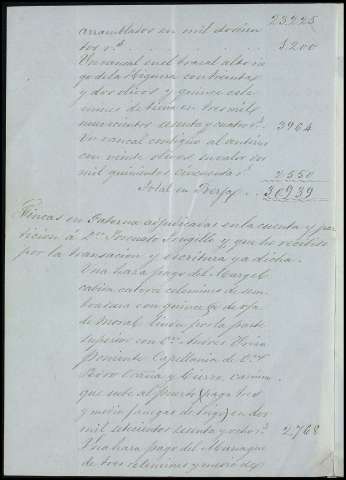 23225
arramblados en mil docien
tos r.s 1.200
Un rancal en el bancal alto
go de la Higuera con treinta
y dos olivos y quince cele
mines de tierra en tres mil
novecientos sesenta y cuatro r.s 3964
Un rancal contiguo al anterior
con veinte olivos, en valor dos
mil quinientos cincuenta 2550
Total en 30939
Fincas en Paterna adjudicadas en la cuenta y par
ticion á D.n y que ha recibido
por la transacion y escritura ya dicha.
Una haza pago del
cabida catorce celemines de sem
bradura con quince de oja
de moral linde por la parte
superior con D.n Andres
Poniente Capellania de D.n
Pedro Ocaña y Cierzo camino
que sube al puerto (paga tres
y media fanegas de trigo) en dos
mil setecientos sesenta y ocho r.s 2,768
Una haza pago del
de tres celemines y medio de